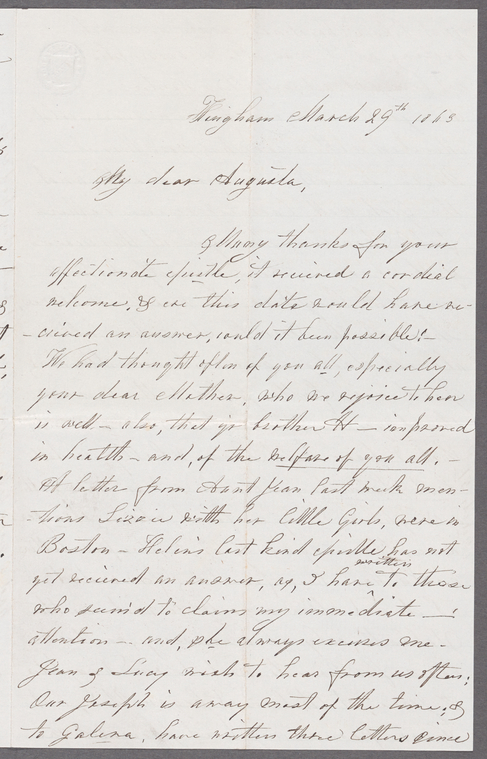 Hingham March 29th 1863
My dear Augusta,
Many thanks for your
affectionate epistle, it recieved a cordial
welcome, & ere this date would have re-
-cieved an answer, could it been possible!-
We had thought often of you all, especially
your dear Mother, who we rejoice to hear
is well - also, that yr brother H - improved
in health - and, of the welfare of you all. -
A letter from Aunt Jean last week men-
-tions Lizzie with her little Girls, were in
Boston - Helen's last kind epistle has not
yet recieved an answer, as, I have written to those
who seem'd to claim my immediate -
attention - and, she always excuses me -
Jean & Lucy wish to hear from us often;
Our Joseph is away most of the time; &
to Galena, have written three letters since